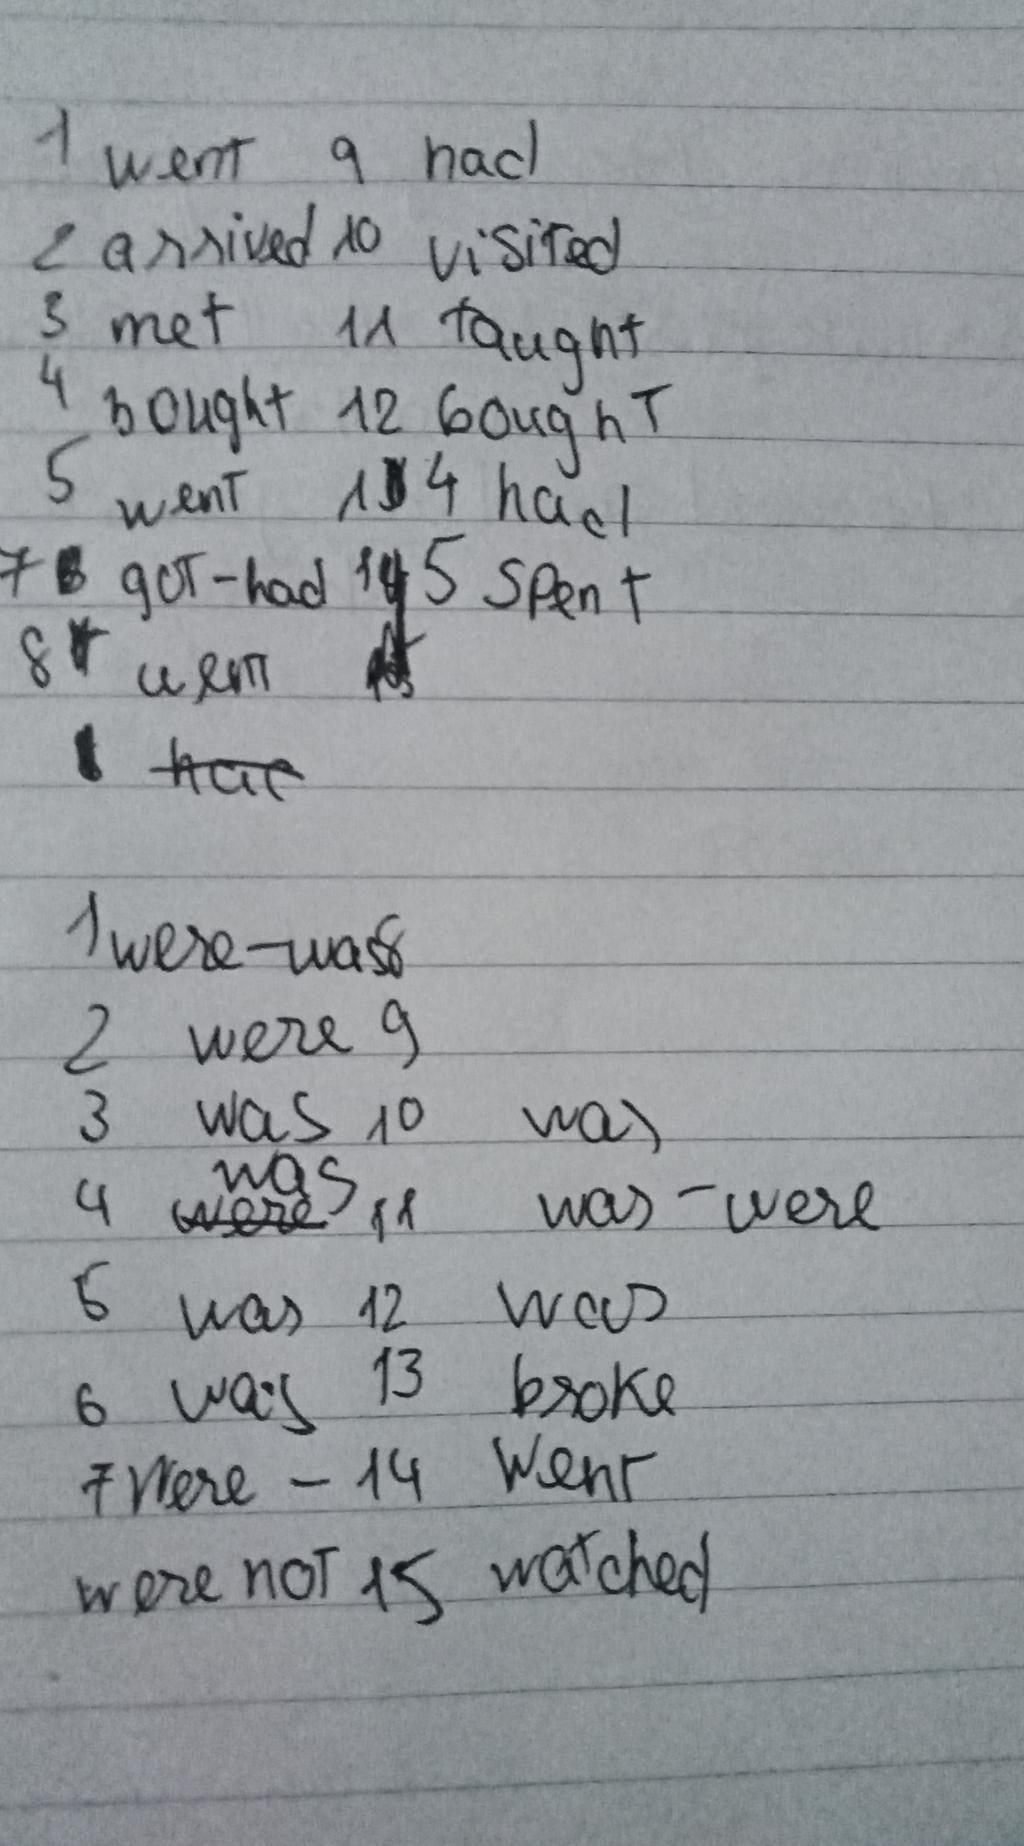 1 went 9 had
2 arrived 10 visited
3 met 11 taught
4 bought 12 bought
5 went 14 had
7 got-had 15 spent
8 went
1 were-was
2 were 9
3 was 10 was
4 was 11 was-were
5 was 12 was
6 was 13 broke
7 were - 14 went
were not 15 watched